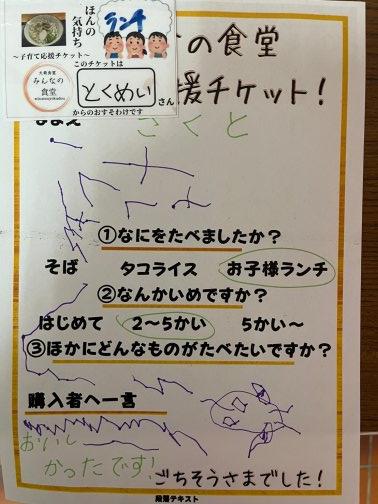 ほんの
気持ち
ランチ
～子育て応援チケット～
このチケットは
大衆食堂
みんなの
食堂
とくめい
さん
からのおすそわけです
の食堂
援チケット!
さくと
①なにをたべましたか？
そば タコライス お子様ランチ
②なんかいめですか？
はじめて 2～5かい 5かい～
③ほかにどんなものがたべたいですか？
購入者へ一言
おいし
かったです!
ごちそうさまでした!
段落テキスト